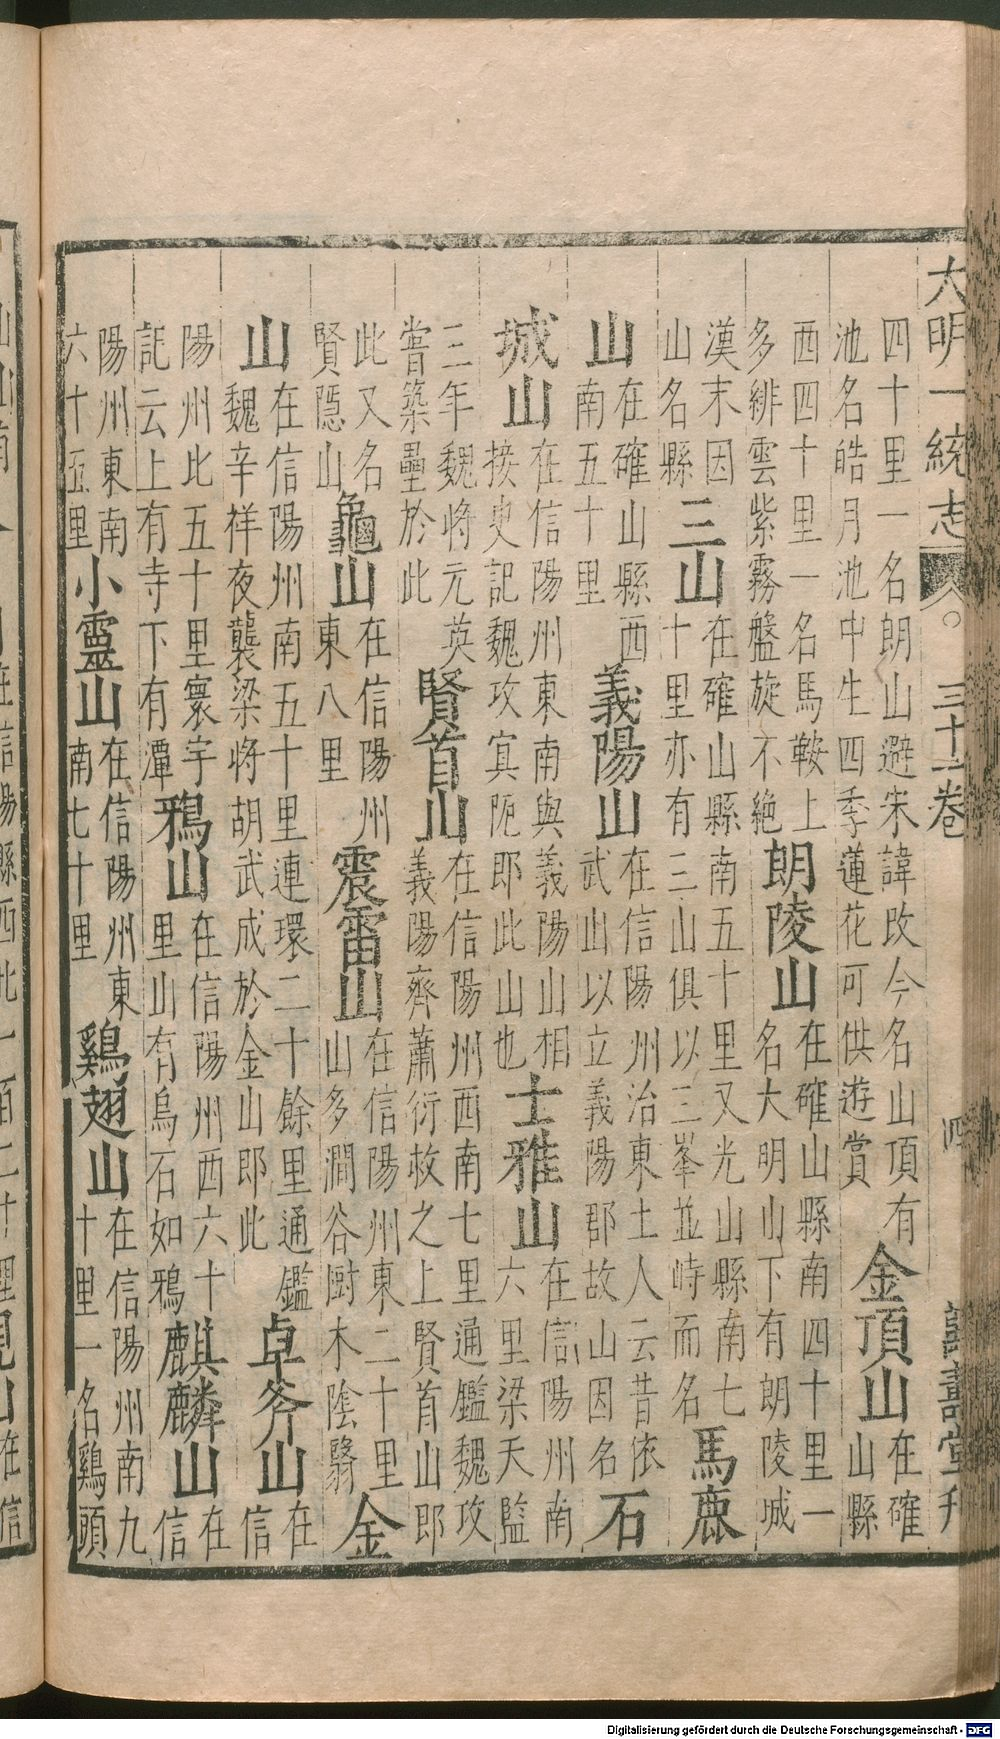 大明一統志 三十一卷 四 萬壽堂刊
四十里一名朗山避宋諱改今名山頂有
池名皓月池中生四季蓮花可供遊賞
金頂山
在確
山縣
西四十里一名馬鞍上
多緋雲紫霧盤旋不絶
朗陵山
在確山縣南四十里一
名大明山下有朗陵城
漢末因
山名縣
三山
在確山縣南五十里又光山縣南七
十里亦有三山俱以三峯並峙而名
馬鹿
山
在確山縣西
南五十里
義陽山
在信陽州治東土人云昔依
武山以立義陽郡故山因名
石
城山
在信陽州東南與義陽山相
按史記魏攻冥阨即此山也
士雅山
在信陽州南
六里梁天監
三年魏將元英
嘗築壘於此
賢首山
在信陽州西南七里通鑑魏攻
義陽齊蕭衍救之上賢首山即
此又名
賢隱山
龜山
在信陽州
東八里
震雷山
在信陽州東二十里
山多澗谷厨木陰翳
金
山
在信陽州南五十里連環二十餘里通鑑
魏辛祥夜襲梁將胡武成於金山即此
卓斧山
在
信
陽州此五十里寰宇
記云上有寺下有潭
鴉山
在信陽州西六十
里山有烏石如鴉
麒麟山
在
信
陽州東南
六十五里
小靈山
在信陽州東
南七十里
鷄翅山
在信陽州南九
十里一名鷄頭
Digitalisierung gefördert durch die Deutsche Forschungsgemeinschaft - DFG